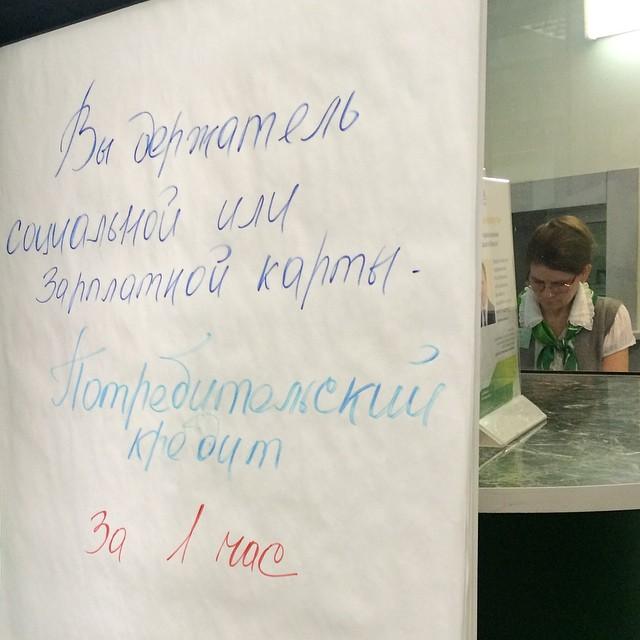 Вы держатель
социальной или
зарплатной карты -
Потребительский
кредит
За 1 час